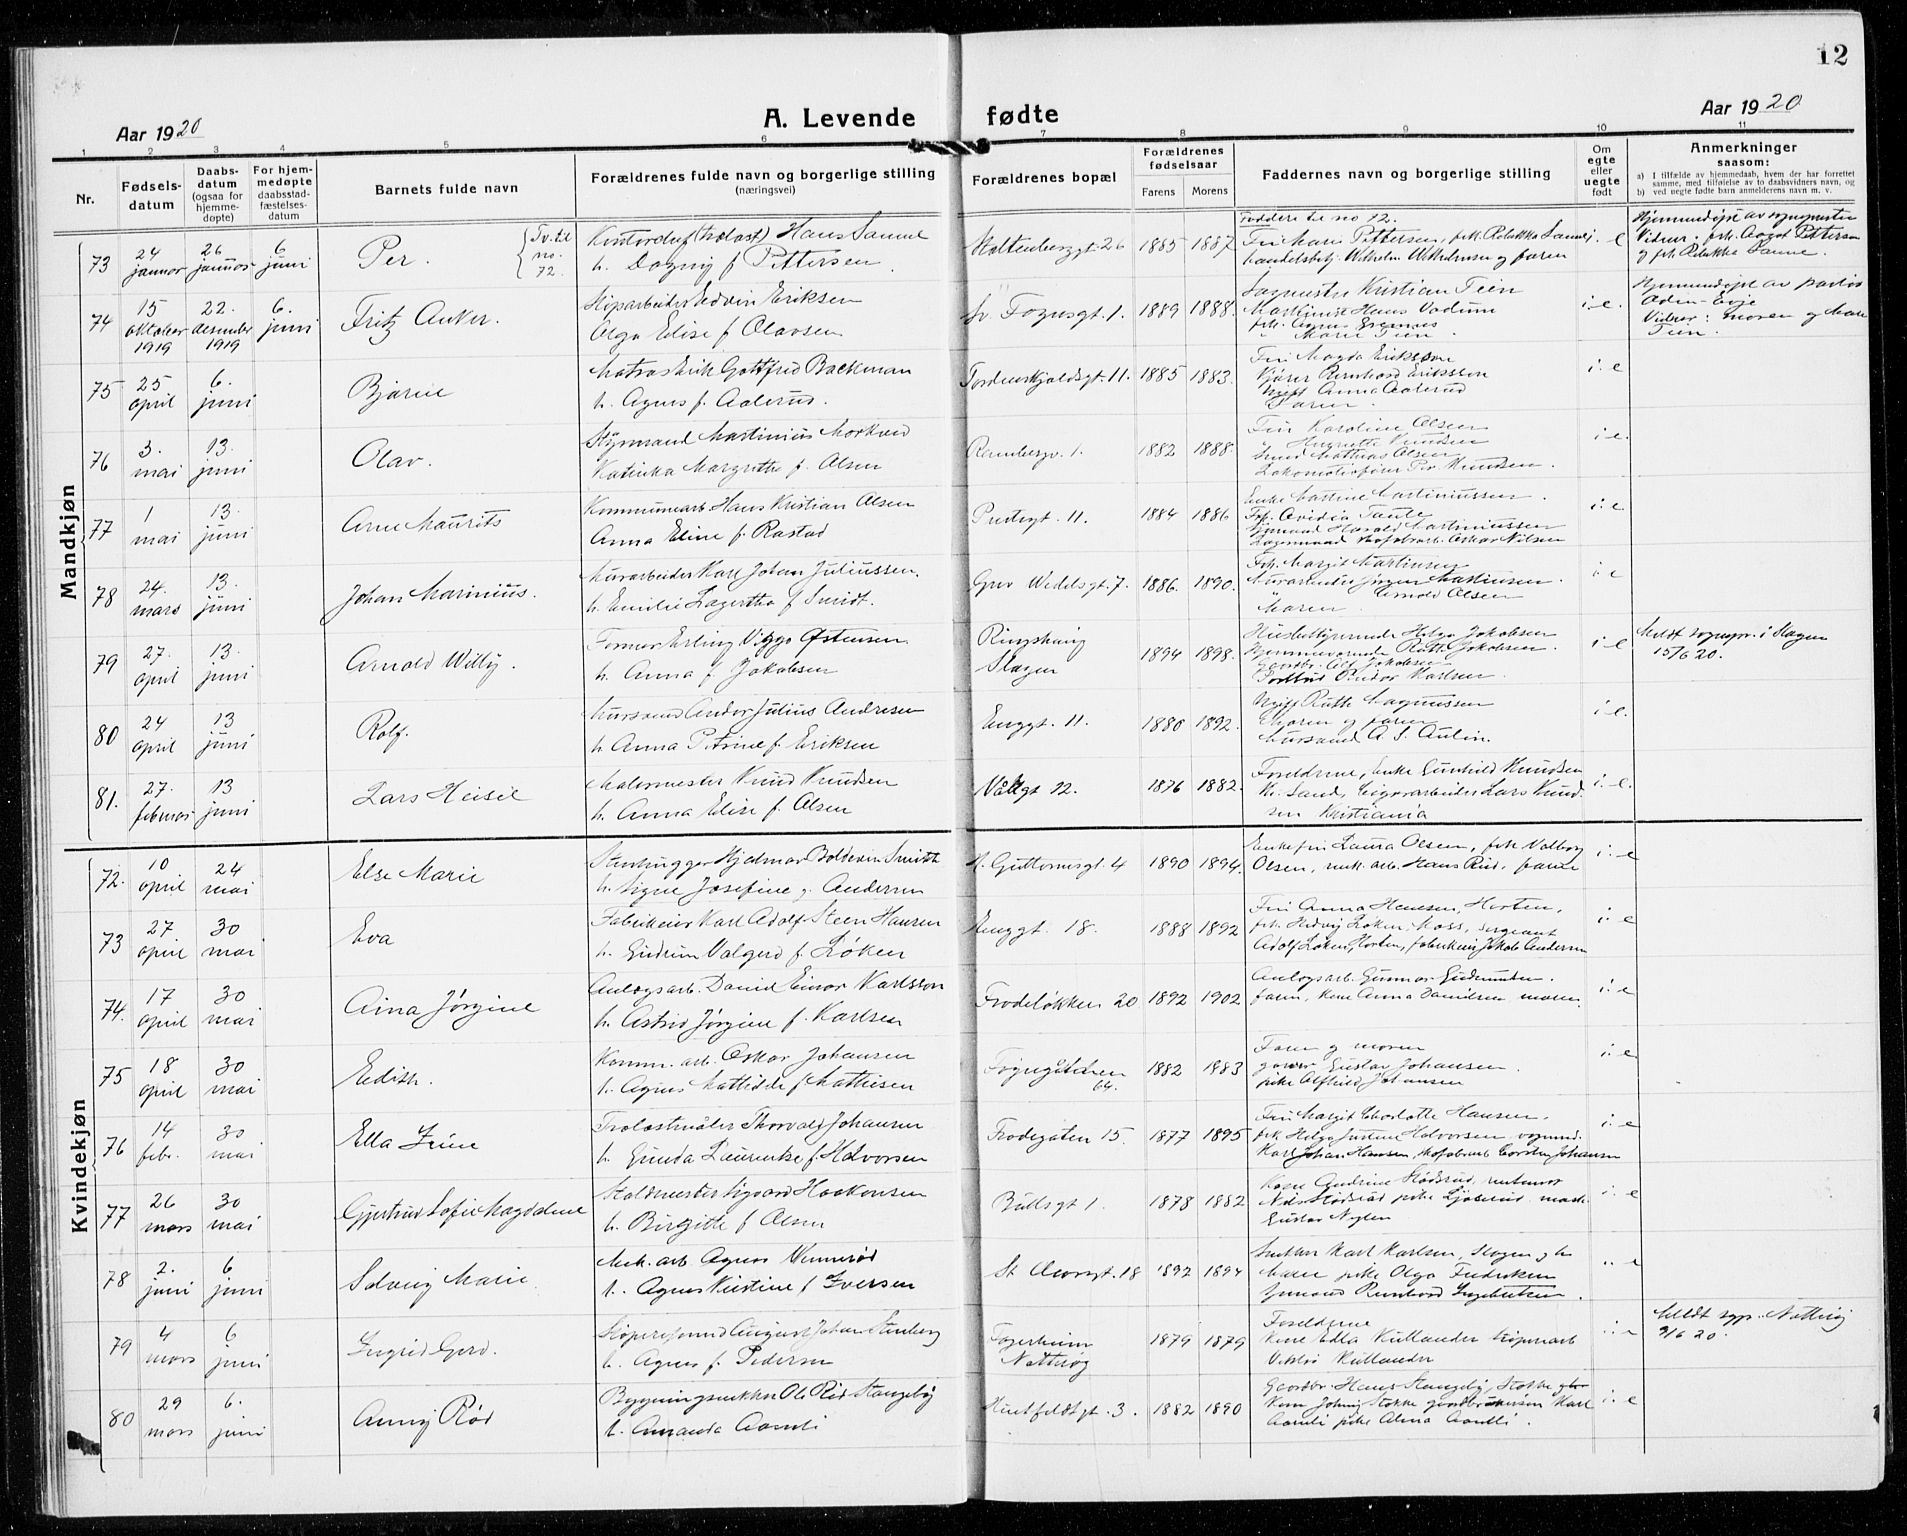 12
Aar 1920
A. Levende fødte
Aar 1920
1 2 3 4 5 6 7 8 9 10 11
Nr.
Fødsels-
datum
Daabs-
datum
(ogsaa for
hjemme-
døpte)
For hjem-
medøpte
daabsstad-
fæstelses-
datum
Barnets fulde navn
Forældrenes fulde navn og borgerlige stilling
(næringsvei)
Forældrenes bopæl
Forældrenes
fødselsaar
Farens
Morens
Faddernes navn og borgerlige stilling
Om
egte
eller
uegte
født
Anmerkninger
saasom:
a) I tilfælde av hjemmedaab, hvem der har forrettet
samme, med tilføielse av to daabsvidners navn, og
b) ved uegte fødte barn anmelderens navn m. v.
Mandkjøn
73 24 januar 26 januar 6 juni Per. Tv. til no. 72.
Hans Sanne
h. Dagny f Pettersen
Stoltenbergt. 26 1885 1887
Faddere til no 72.
Fru Marie Pettersen, frk. Rebekka Sanne,
Wilhelm Wilhelmsen og faren
e
Hjemmedøpt av sognepresten
Vidner: frk. Aagot Pettersen
og frk Rebekka Sanne.
74 15 oktober 1919 22. desember 1919 6. juni Fritz Anker.
Skipsarbeider Edvin Eriksen
Olga Elise f Olavsen
Sv. Foynsgt. 1. 1889 1888.
Kristian Teien
Hans Vadum
frk. Agnes
Marie Teien.
i. e.
Hjemmedøpt av pastor
Vidner: moren og Marie
Teien.
75 25 april 6. juni Bjarne
Matros Erik Gottfred Backman
h. Agnes f. Aalerud.
Tordenskjoldsgt. 11. 1885 1883.
Fru Magda Eriksson
Reinhard Eriksson
Anna Aalerud
Faren.
i. e
76 3. mai 13. juni Olav.
Styrmand Martinius Morkved
Katinka Margrethe f. Olsen
Rambergv. 1. 1882 1888.
Fru Karoline Olsen
Henriette Knudsen
Mathias Olsen
Lokomotivfører Per Knudsen.
i. e.
77 1 mai 13. juni Arne Maurits
Kommunearb. Hans Kristian Olsen
Anna Eline f. Rastad
Prestegt. 11. 1884 1886
Enke Martine Martiniussen.
Frk. Ovidia
Harald Martiniussen
Oskar Nilsen
i. e
78 24. mars 13. juni Johan Marinius.
Murarbeider Karl Johan Juliussen.
h. Emilie Lagertha f Smidt.
Grev Wedelsgt. 7. 1886. 1890.
Frk. Margit Martinsen
Murarbeider Jørgen Martinsen.
" Arnold Olsen
Moren.
i. e
79 27. april 13. juni Arnold Willy.
Former Erling Viggo Østensen
h. Anna f Jakobsen
Ringshaug
Slagen
1894 1898.
Helga Jakobsen
Hjemmeværende Ruth Jakobsen.
Gaardbr. Jakobsen
Karlsen.
i. e
Meldt sognepr. i Slagen
15/6 20.
80 24 april 13 juni Rolf.
Andor Julius Andresen
h. Anna Petrine f. Eriksen
Enggt. 11. 1880 1892.
Ruth Magnussen
Moren og faren
A. S. Aulin.
i. e.
81. 27. februar 13 juni Lars Heisel
Malermester Knud Knudsen
h. Anna Elise f. Olsen
Vållgt 12. 1876 1882.
Foreldrene, Enke Gunhild Knudsen
Sand, Cigararbeider Lars Knud-
sen Kristiania
i. e.
Kvindekjøn
72. 10 april 24 mai Else Marie
Stenhugger Hjalmar Smith
h. Signe Josefine f. Andersen
N. Guttormsgt. 4 1890 1894.
Enkefru Laura Olsen, frk Valborg
Olsen, mek. arb. Hans Rud, faren
i. e
73 27 april 30 mai Eva
Fabrikeier Karl Adolf Steen Hansen
h. Gudrun Valgerd f. Løken
Enggt. 18. 1888 1892
Fru Anna Hansen, Horten,
frk Hedvig Løken, Moss, sergeant
Adolf Løken, Horten, fabrikeier Jakob Andersen
i. e
74. 17 april 30 mai Aina Jørgine
Anlægsarb. Daniel Einar Karlsson
h. Astrid Jørgine f. Karlsen
Frodeløkken 20 1892 1902
Anlægsarb. Gunnar Gudmundsen.
faren, kone Anna Danielsen moren
i. e
75 18 april 30 mai Edith.
Komm. arb. Oskar Johansen
h. Agnes Mathilde f Mathisen
Foynegården
64.
1882 1883
Faren og moren
Gustav Johansen.
pike Alfhild Johansen
i. e
76 14 febr. 30 mai Ella Irene
Trælastmåler Thorvald Johansen
h. Gunda Laurentse f. Halvorsen
Frodegaten 15. 1877 1895
Fru Margit Charlotte Hansen.
frk Helga Justine Halvorsen, vognmd.
Karl Johan Hansen, skofabr.arb. Johansen
i. e
77 26 mars 30 mai Gjertrud Sofie Magdalene
Staldmester Sigvard Haakonsen
h. Birgitte f Olsen
Bullsgt 1. 1878 1882
Kone Andrine Stødsrud, rentenar
Stødsrud, pike mask.
Gustav Nylen
i. e
78 2. juni 6 juni Solveig Marie
Mek. arb. Agnar Wennerød
h. Agnes Kristine f Iversen
St. Olavsgt. 18 1892 1894
Snekker Karl Karlsen, Slagen
Marie pike Olga Fredriksen
Reinhard Ingebretsen.
" e
79 4 mars 6 juni Ingrid Gerd.
August Johan Stenberg
h. Agnes f. Pedersen
Fogerheim
Nøtterøy
1879 1879
Foreldrene
Kone Edla Kullander støperiarb
Viktor Kullander
i. e
Meldt sgpr. Nøtterøy
9/6 20.
80 29 mars 6. juni Anny Rød
Bygningssnekker Ole Rød Stangeby
h. Amanda Aamli
Huitfeldtgt. 3. 1882 1890
Gaardbr. Hans Stangeby, Stokke
Kone Johny Stokke Karl
Aamli pike Alma Aamli.
i. e